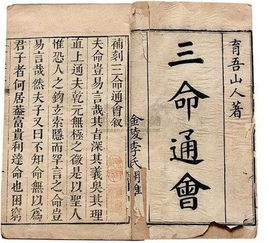 育吾山人著
三命通會
金陵李氏
補刻三命通會叙
夫命豈易言哉其旨深其義奥其理
直上通夫乾元無極之後是以聖人
惟恐人之鈎玄索隱而罕言之命豈
易言哉然夫子又曰不知命無以為
君子者何居葢富貴利達命也困窮